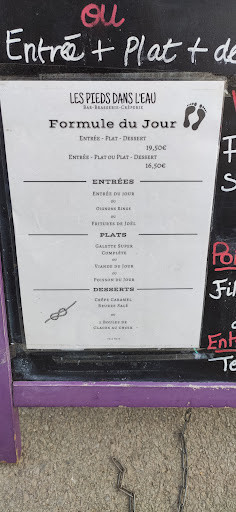 ou
Entrée + Plat + de
LES PIEDS DANS L'EAU
BAR-BRASSERIE-CRÊPERIE
Formule du Jour
ENTRÉE - PLAT - DESSERT
19,50€
ENTRÉE - PLAT OU PLAT - DESSERT
16,50€
ENTRÉES
ENTRÉE DU JOUR
OU
OIGNONS RINGS
OU
FRITURES DE JOËL
PLATS
GALETTE SUPER
COMPLÈTE
OU
VIANDE DU JOUR
OU
POISSON DU JOUR
DESSERTS
CRÊPE CARAMEL
BEURRE SALÉ
OU
2 BOULES DE
GLACES AU CHOIX
Fi
Ent